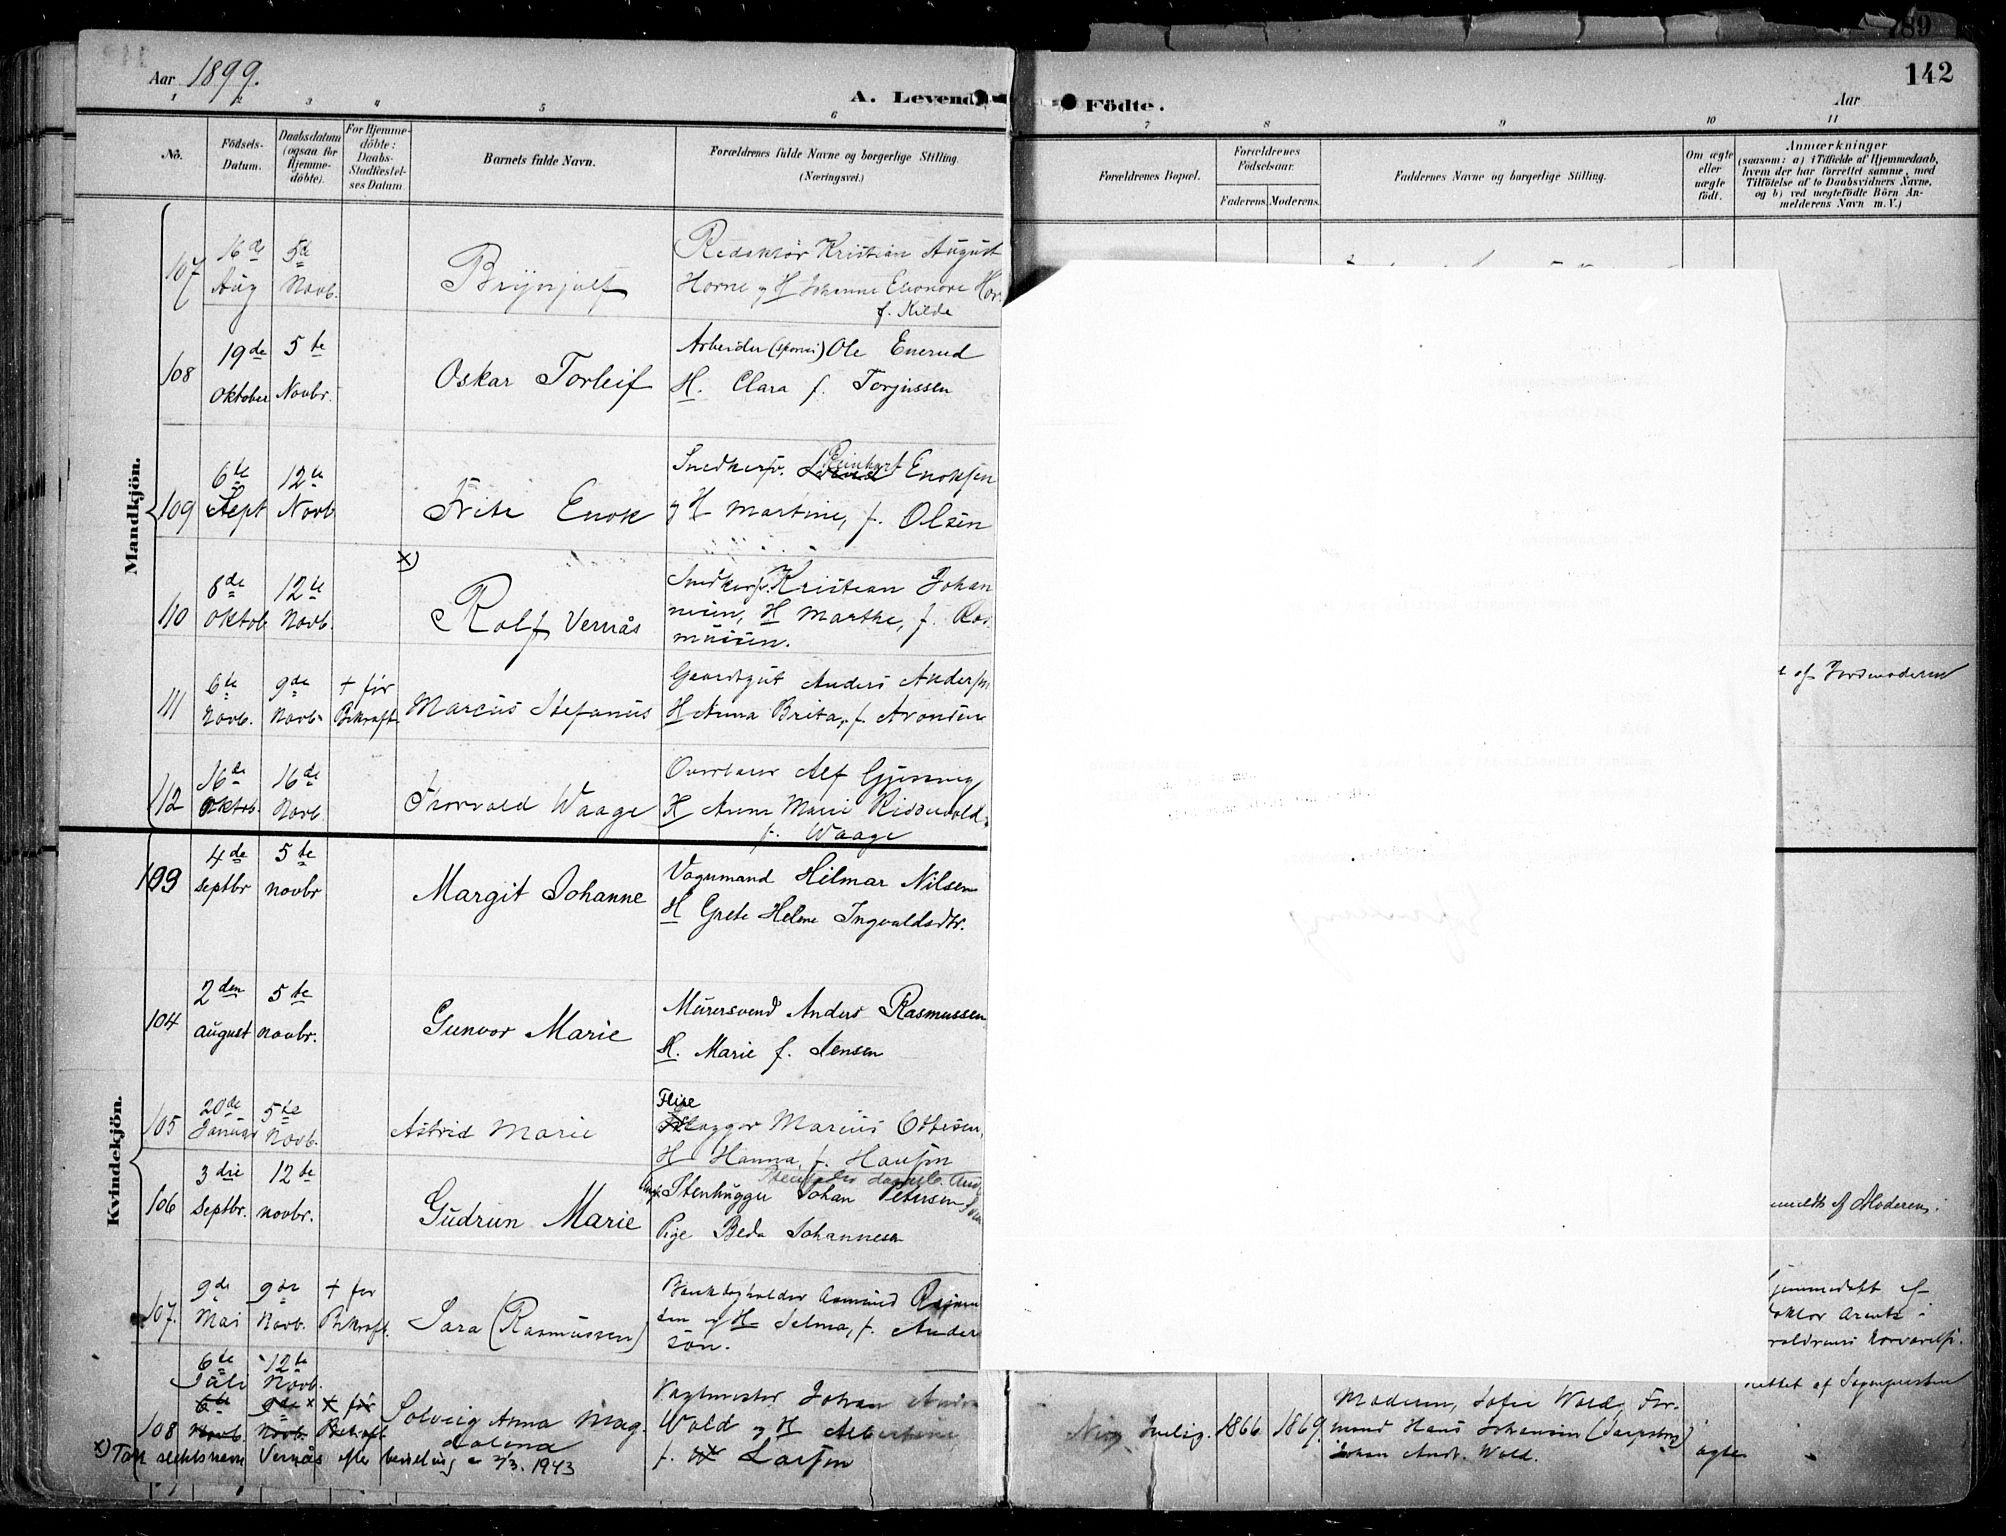 89
142
Aar 1899.
A. Levende Födte.
Aar
1 2 3 4 5 6 7 8 9 10 11
No.
Födsels-
Datum.
Daabsdatum
(ogsaa for
Hjemme-
döbte).
For Hjemme-
döbte:
Daabs-
Stadfæstel-
ses Datum.
Barnets fulde Navn.
Forældrenes fulde Navne og borgerlige Stilling.
(Næringsvei.)
Forældrenes Bopæl.
Forældrenes
Födselsaar.
Faderens. Moderens.
Faddernes Navne og borgerlige Stilling.
Om ægte
eller
uægte
födt.
Anmærkninger
(saasom: a) i Tilfælde af Hjemmedaab,
hvem der har forrettet samme, med
Tilföielse af to Daabsvidners Navne,
og b) ved uægtefödte Börn An-
melderens Navn m. V.)
Mandkjön.
107
16de Aug
5te Novb.
Brynjulf
Redaktör Kristian August
Horne og H Johanne Eleonore Hor
f. Kilde
108
19de Oktober
5te Novbr.
Oskar Torleif
Arbeider (sporvei) Ole Enerud
H. Clara f. Torjussen
109
6te Sept
12te Novb
Fritz Enok
Snedkersv. Reinhart Enoksen
og H Martine, f. Olsen
110
8de Oktob
12te Novb.
x)
Rolf Vernås
Snedkersv. Kristian Johan
nesen, H Marthe, f. Ras
mussen.
111
6te Novb.
9de Novb.
+ før
Bekraft.
Marcus Stefanus
Gaardsgut Anders Andersen
H Anna Brita, f. Aronsen
t af Jordmoderen
112
16de Oktob.
16de Novb.
Thorvald Waage
Overlærer Alf Gjessing
H Anna Marie Ridderwold
f. Waage
Kvindekjön.
103
4de Septbr
5te novbr
Margit Johanne
Vognmand Hilmar Nilsen
H Grete Helene Ingvaldsdtr.
104
2den august
5te novbr.
Gunvor Marie
Murersvend Anders Rasmussen
H. Marie f. Jensen
105
20de Januar
5te Novb.
Astrid Marie
Flise
lægger Marius Ottesen,
H Hanna, f. Hansen
106
3die Septbr.
12te novbr.
Gudrun Marie
Ungk. Stenhugger Johan Petersen
Pige Beda Johannesen
meldt af Moderen.
107.
9de Mai
9de Novb.
+ før
Bekraft.
Sara (Rasmussen)
Bankbogholder Asmund Rasmus
sen og H Selma, f. Ander
son.
hjemmedøbt af
Doktor Arentz i
108
6te Juli
12te Novb.
6te Novb.
9de x Novb.
+ før
Bekraft
Solveig Anna Mag
dalena
Vagtmester Johan Andr
Wold og H Albertine
f. Larsen
1866
1869.
Moderen, Sofie Wold, For-
mand Hans Johansen (Sarpsborg)
Johan Andr. Wold.
ægte
x) Tatt slektsnavn Vernås efter bevilling a 2/3. 1943